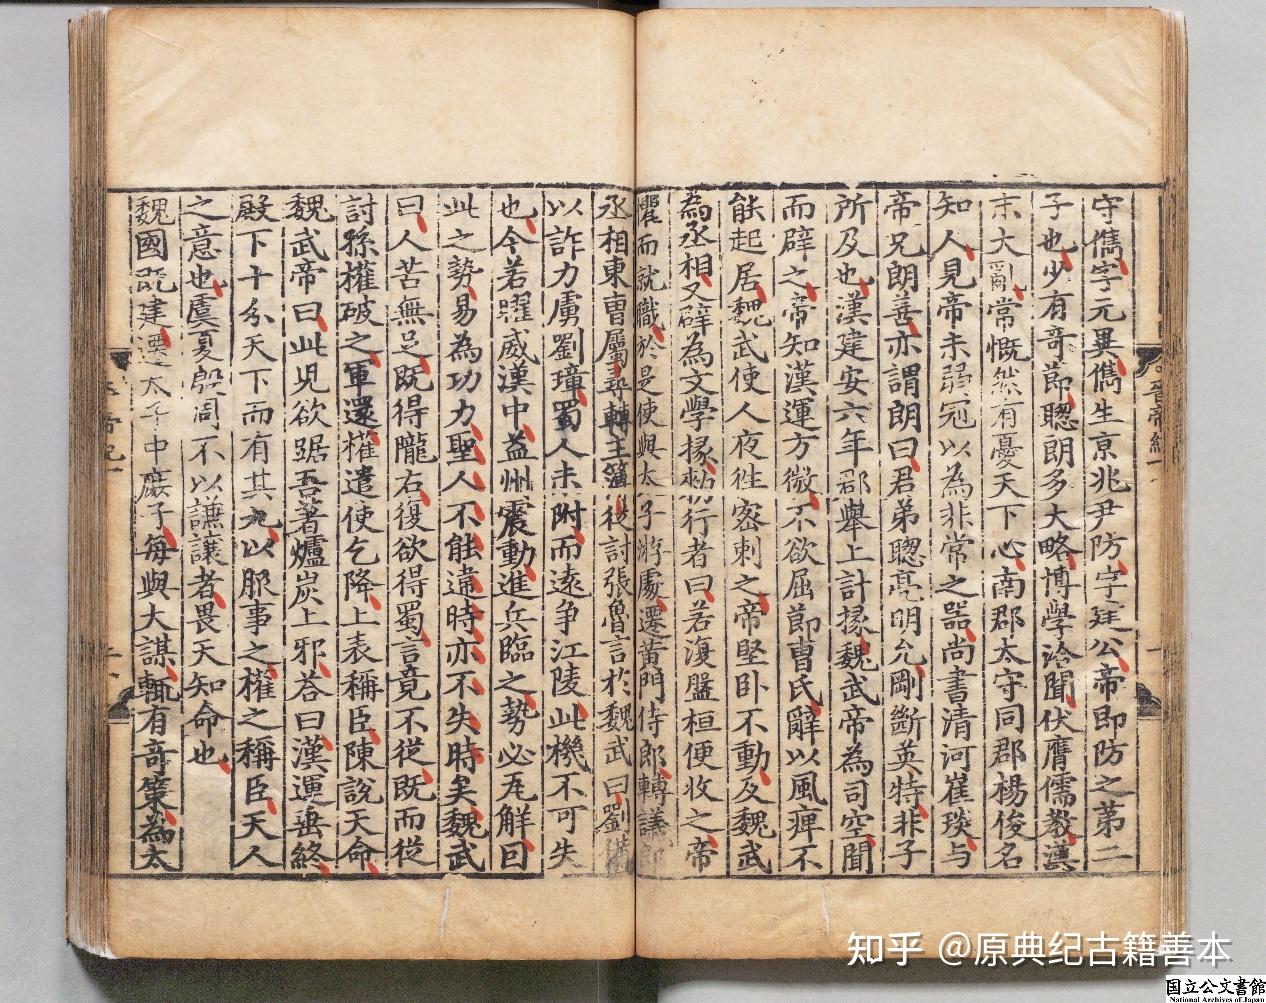 守儁字元異儁生京兆尹防字建公帝即防之第二
子也少有奇節聦朗多大略博學洽聞伏膺儒教漢
末大亂常慨然有憂天下心南郡太守同郡楊俊名
知人見帝未弱冠以為非常之噐尚書清河崔琰与
帝兄朗善亦謂朗曰君弟聦亮明允剛斷英特非子
所及也漢建安六年郡舉上計掾魏武帝為司空聞
而辟之帝知漢運方微不欲屈節曹氏辭以風痺不
能起居魏武使人夜徃密刺之帝堅卧不動及魏武
為丞相又辟為文學掾勑行者曰若復盤桓便收之帝
懼而就職於是使與太子游處遷黄門侍郎轉議郎
丞相東曹屬尋轉主簿從討張魯言於魏武曰劉備
以詐力虜劉璋蜀人未附而遠争江陵此機不可失
也今若曜威漢中益州震動進兵臨之勢必瓦解囙
此之勢易為功力聖人不能違時亦不失時矣魏武
曰人苦無足既得隴右復欲得蜀言竟不從既而從
討孫權破之軍還權遣使乞降上表稱臣陳說天命
魏武帝曰此児欲踞吾著爐炭上邪荅曰漢運垂終
殿下十分天下而有其九以服事之權之稱臣天人
之意也虞夏殷周不以謙讓者畏天知命也
魏國既建遷太子中庶子每與大謀輒有奇策為太
晉帝紀一
帝紀一
知乎 @原典纪古籍善本
国立公文書館
National Archives of Japan